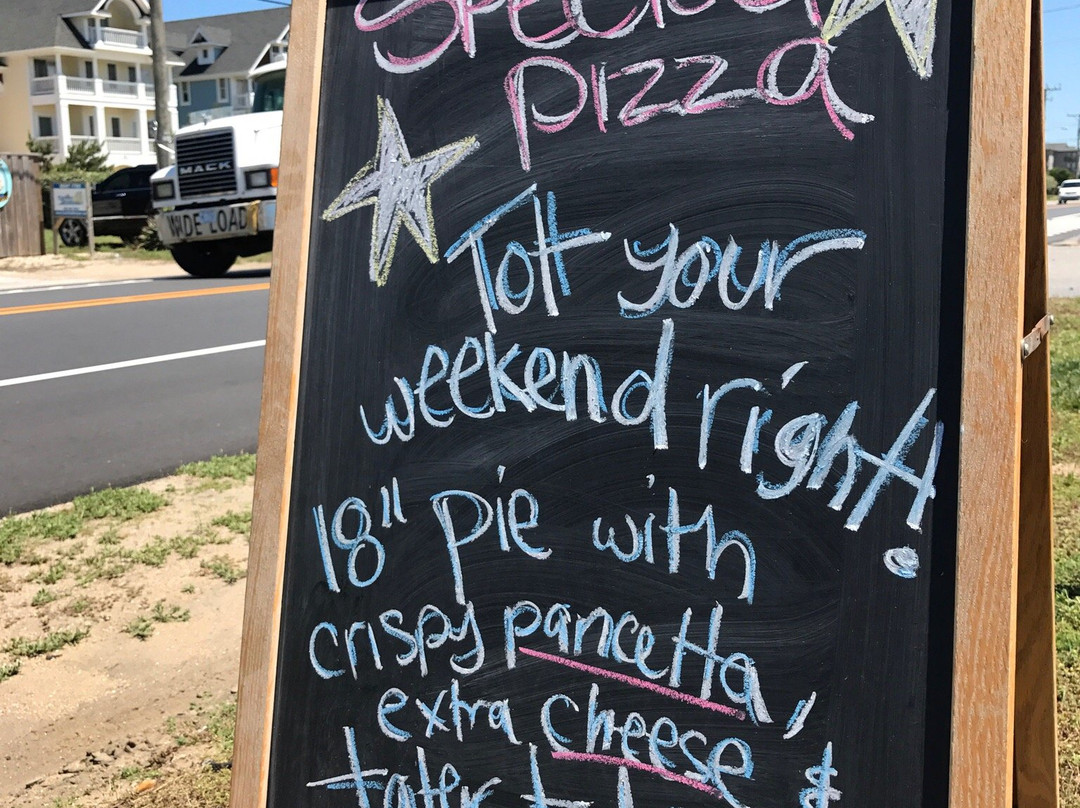 Special
pizza
Tot your
weekend right!
18" pie with
crispy pancetta,
extra cheese
tater
MACK
WIDE LOAD